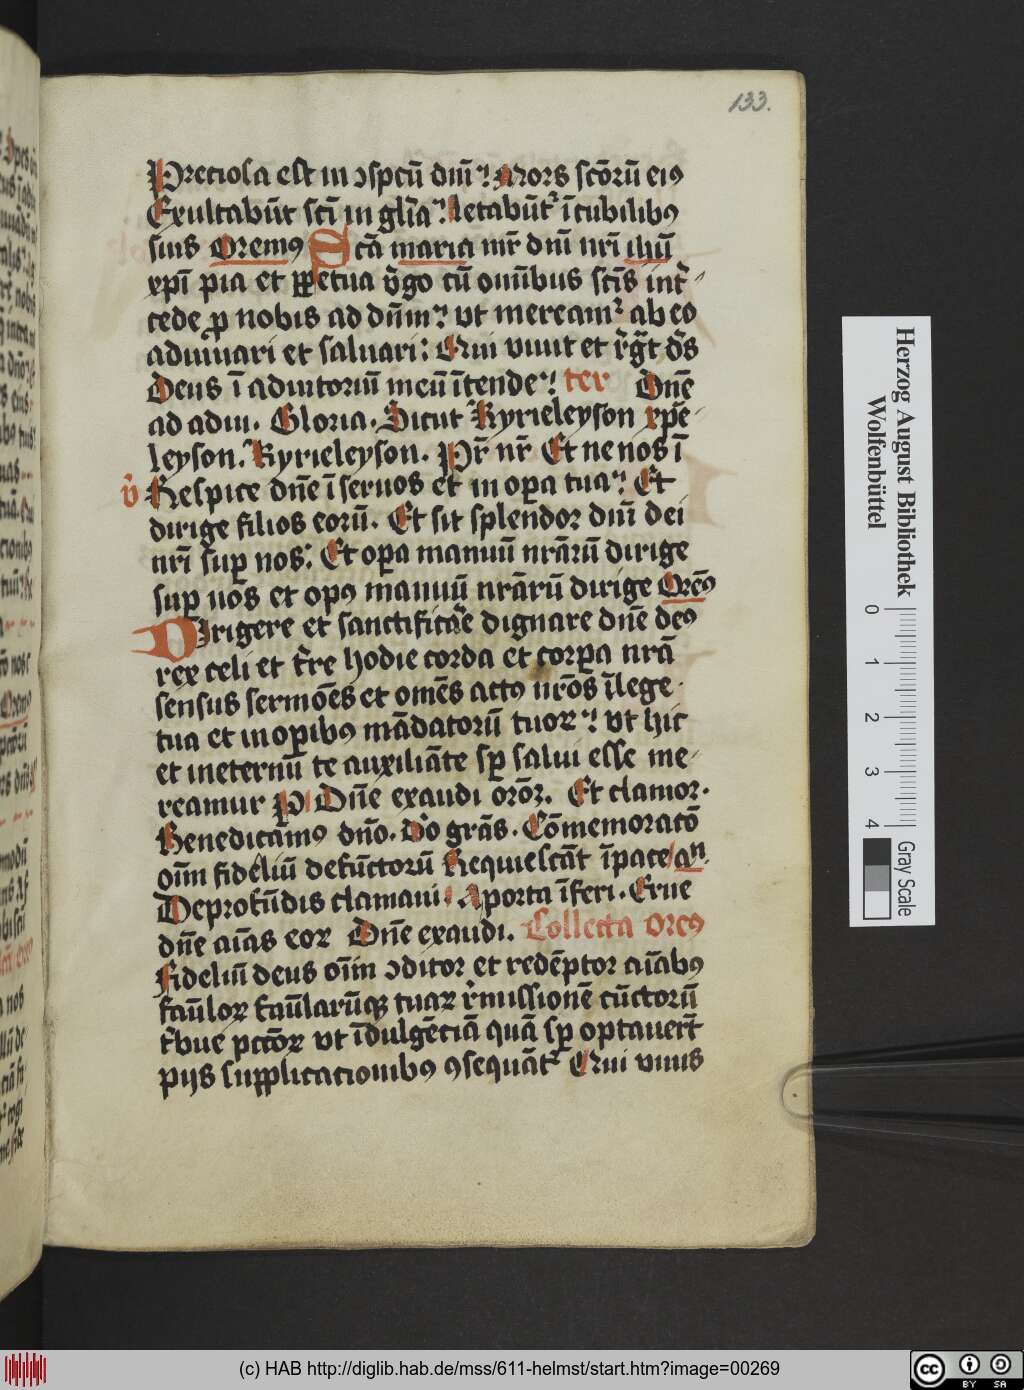 133.
Preciosa est in ɔspctū dnī? Mors scōrū eiꝰ
Exultabūt sci in gl̄ia? letabūtᷣ ī cubilibꝰ
suis Oremꝰ Scā maria mr̄ dnī nrī ihū
xpī pia et ꝑpetua ỽgo cū omībus sc̄is int̄
cede ꝓ nobis ad dūm? vt mereamᷣ ab eo
adiuuari et saluari: Qui viuit et r̄ḡt d̄s
Deus ī adiutoriū meū ītende! ter Dnē
ad adiu. Gloria. Sicut Kyrieleyson xp̄e
leyson. Kyrieleyson. Pr̄ nr̄ Et ne nos ī
v̄ Respice dnē ī seruos et in oꝑa tua? Et
dirige filios eorū. Et sit splendor dnī dei
nrī suꝑ nos: Et oꝑa manuū nrārū dirige
suꝑ nos et opꝰ manuū nrārū dirige Orēꝰ
Dirigere et sanctificāe dignare dnē deꝰ
rex celi et t̄re hodie corda et corꝑa nrā
sensus sermōes et omēs actꝰ nrōs ī lege
tua et in oꝑibꝰ mādatorū tuoꝝ? vt hic
et ineternū te auxiliāte sꝑ salui esse me
reamur P Dnē exaudi orōꝫ. Et clamor.
Benedicāmꝰ dnō. Dō grās. Cōmemoratō
oīm fideliū defūctorū Requiescāt ī pace an
De profūdis clamaui Aporta īferi. Erue
dnē aīas eoꝝ Dnē exaudi. Collecta Oreꝰ
Fideliū deus oīm ɔditor et redēptor aīabꝰ
faūloꝝ faūlarūqꝫ tuaꝝ r̄missionē cūctorū
t̄bue pccōꝝ vt īdulgētiā quā sꝑ optauert̄
pijs supplicacionibꝰ ꝯsequātᷣ Qui viuis
Herzog August Bibliothek
Wolfenbüttel
0 1 2 3 4
Gray Scale
(c) HAB http://diglib.hab.de/mss/611-helmst/start.htm?image=00269
cc BY SA